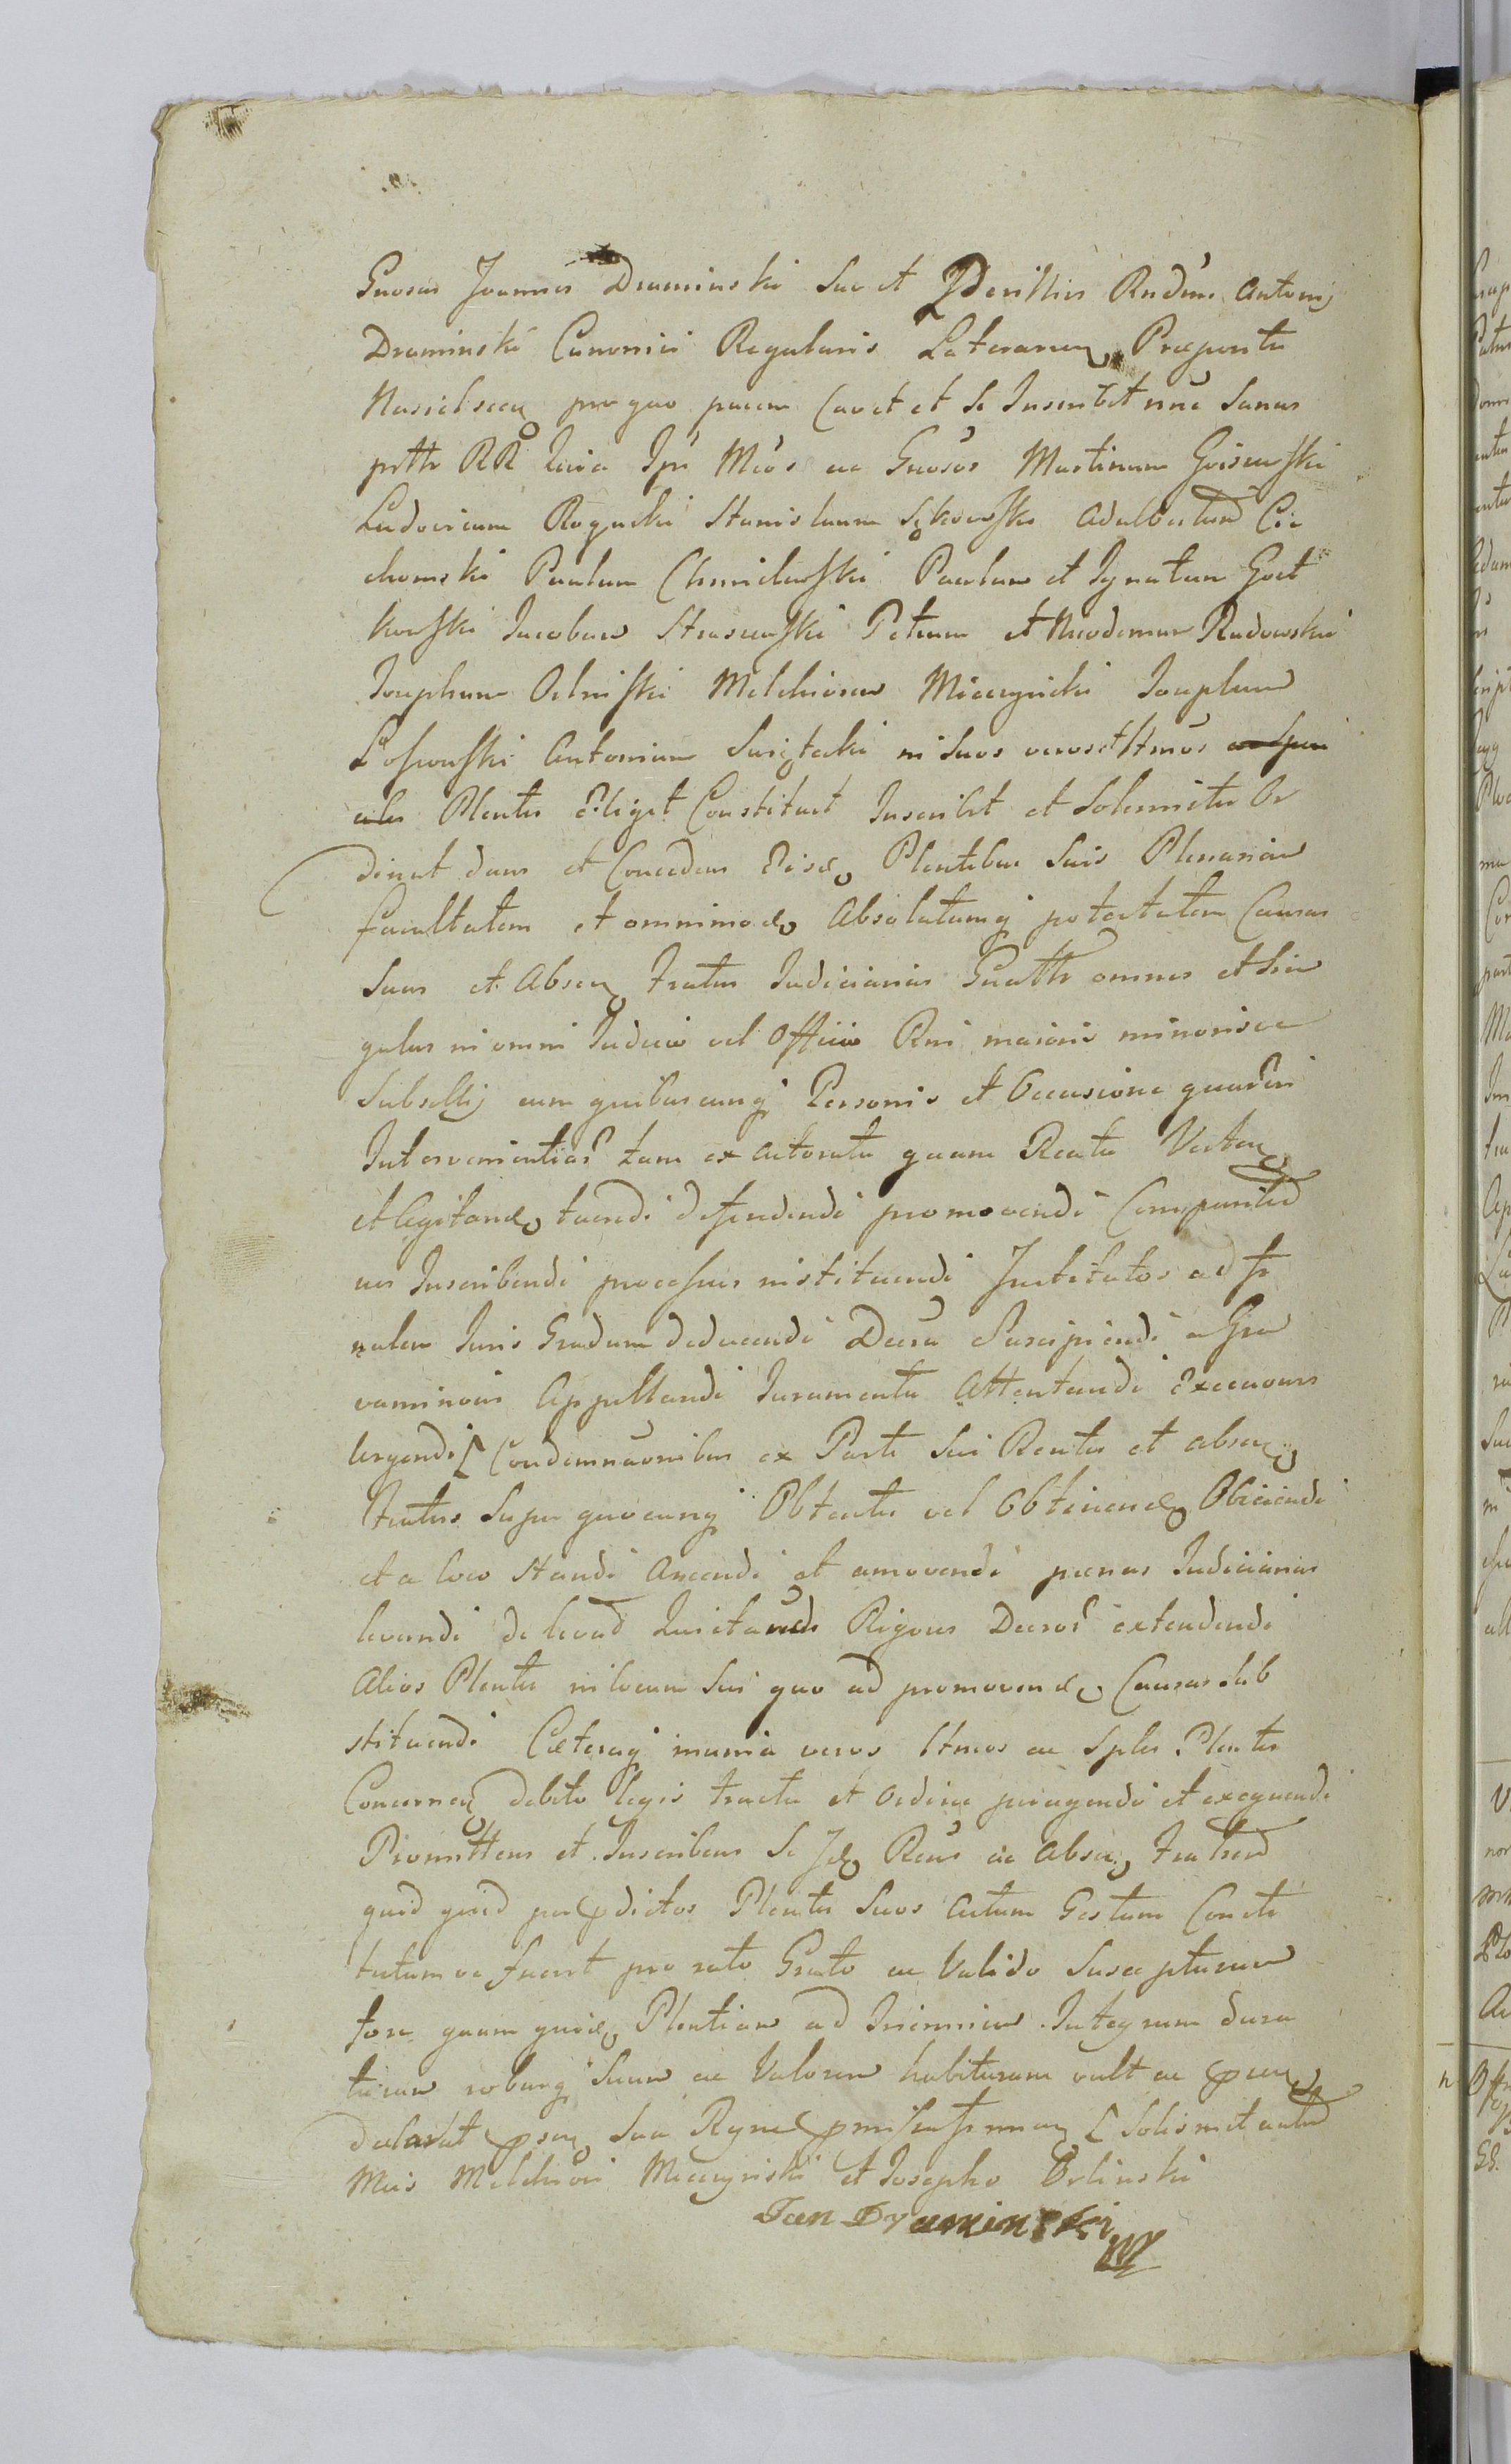 Gnosus Joannes Draminski Suo et Perillris Rndmi Antonij
Draminski Canonici Regularis Lateranen Præpositi
Nasielscen pro quo pacem Cavet et Se Inscribit nne Sanus
prttr RR Iuia Ipi Mcos ac Gnosos Martinum Goiszewski
Ludovicum Rogucki Stanislaum Adalbertum Cie
chomski Paulum Chmielewski Paulum et Ignatium Gost
kowski Jacobum Straszewski Petrum et Nicodemum Radowskie
Josephum Orlinski Melchiorem Mieczynski Josephum
Lossowski Antonium Swiętecki in Suos veros Ittmos
Plentes Eligit Constituit Inscribit et Solemniter Or
dinat dans et Concedens Eisd Plentibus Suis Plenariam
facultatem et omnimod Absolutamq potestatem Causas
Suas et Absen fratris Judiciarias Gnattr omnes et sin
gulas in omni Judicio vel Officio Rni maioris minorisve
Subsellij cum quibuscunq Personis et Occasione quarum
Intervenientias tam ex Actoratu quam Reatu Verten
et Agitand tuendi defendendi promovendi Comparitio
nes Inscribendi processus instituendi Institutos ad fi
nalem Juris Gradum deducendi Decra Suscipiendi a Gra
vaminois Appellandi Juramenta Attentandi Execuoues
Urgendi Condemnaonibus ex Parte Sui Rentis et absen
fratris Super quocunq Obtentis vel Obtinend Obiiciendi
et a loco Standi Arcendi et amovendi pænas Judiciarias
levandi de levad Quietandi Rigores Decror extendendi
Alios Plentes in locum Sui quo ad promovend Causas Sub
stituendi Cæteraq munia veros Ittmos ac Sples Plentes
Concernen debito legis tractu et Ordine peragendi et exequendi
Promittens et Inscribens Se Id Rens ac Absen fratrem
quid quid per pdictos Plentes Suos Actum Gestum Consti
tutumve fuerit pro rato Grato ac Valido Suscepturum
fore quam quid Plentiam ad Triennium Integrum dura
turam roburq Suum ac Valorem habituram vult ac psen
declarat psen Sua Rgne pmissa firman Solis mit actu
Mcis Melchiori Mieczynski et Josepho Orlinski
Jan Draminski mp